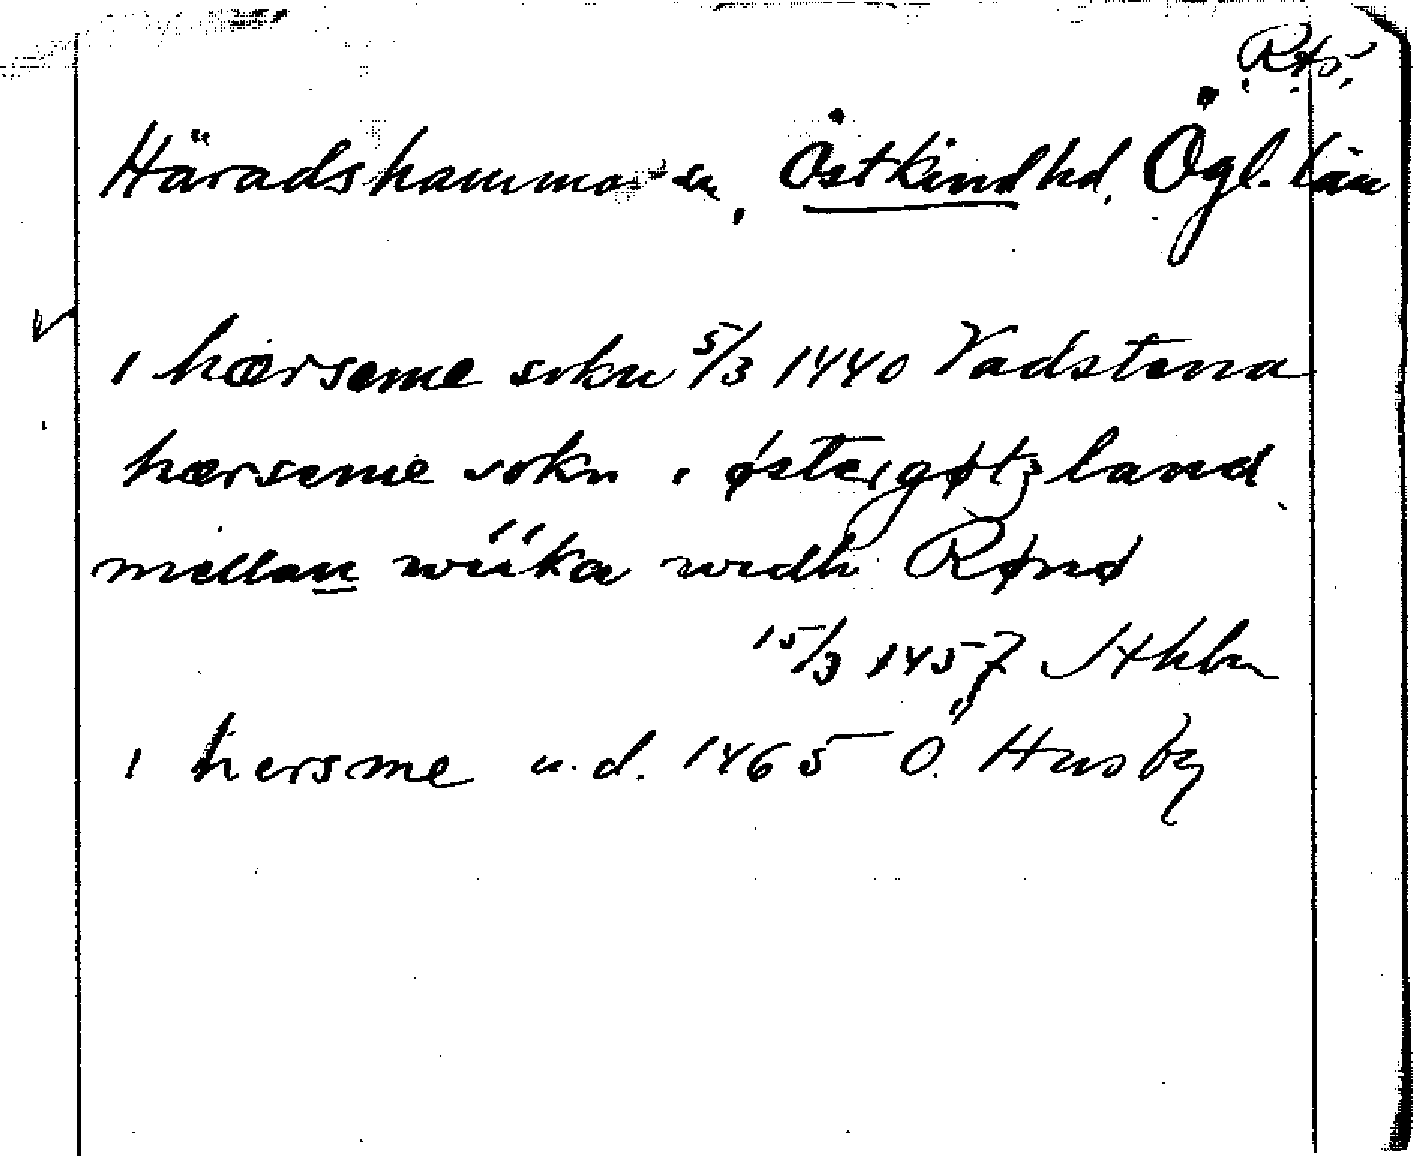 RAp.
Häradshammar sn, Östkind hd, Ögl. län
i hærseme sokn 5/3 1440 Vadstena
hærseme sokn i østergøtzland
mellan wiika widh Rønø
15/3 1457 Sthlm
i hersme u.d. 1465 Ö. Husby